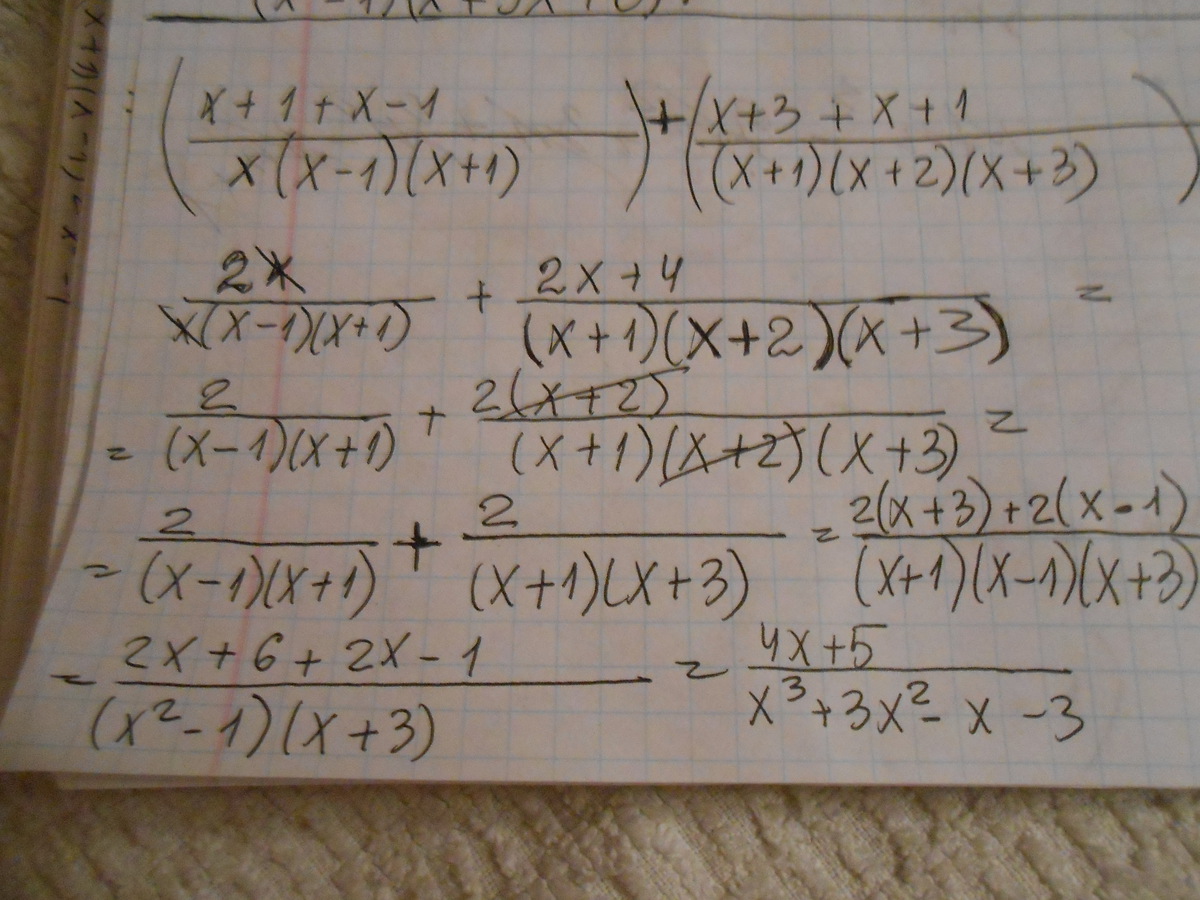 (x+1+x-1)/(x(x-1)(x+1)) + (x+3+x+1)/((x+1)(x+2)(x+3))
2x/(x(x-1)(x+1)) + (2x+4)/((x+1)(x+2)(x+3)) =
= 2/((x-1)(x+1)) + 2(x+2)/((x+1)(x+2)(x+3)) =
= 2/((x-1)(x+1)) + 2/((x+1)(x+3)) = (2(x+3)+2(x-1))/((x+1)(x-1)(x+3))
= (2x+6+2x-1)/((x²-1)(x+3)) = (4x+5)/(x³+3x²-x-3)